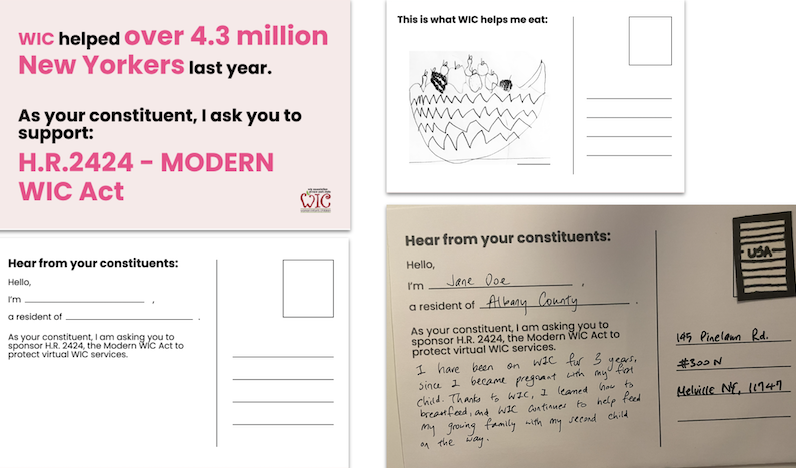 WIC helped over 4.3 million
New Yorkers last year.
As your constituent, I ask you to
support:
H.R.2424 - MODERN
WIC Act
WIC
This is what WIC helps me eat:
Hear from your constituents:
Hello,
I'm ,
a resident of .
As your constituent, I am asking you to
sponsor H.R. 2424, the Modern WIC Act to
protect virtual WIC services.
Hear from your constituents:
Hello,
I'm Jane Doe ,
a resident of Albany County .
As your constituent, I am asking you to
sponsor H.R. 2424, the Modern WIC Act to
protect virtual WIC services.
I have been on WIC for 3 years,
since I became pregnant with my first
child. Thanks to WIC, I learned how to
breastfeed, and WIC continues to help feed
my growing family with my second child
on the way.
USA
145 Pinelawn Rd.
#300N
Melville NY, 11747